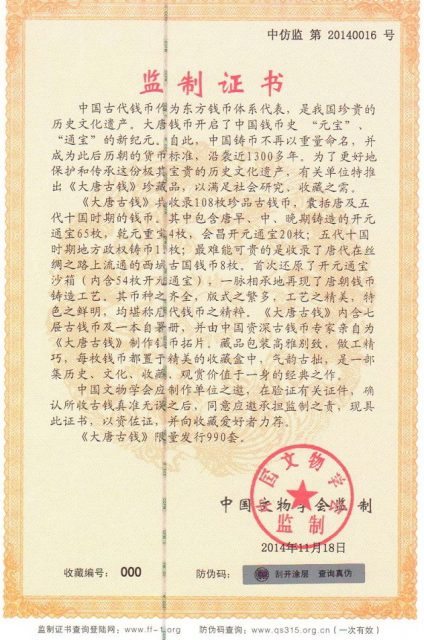 中仿监 第 20140016 号
监制证书
中国古代钱币作为东方钱币体系代表，是我国珍贵的
历史文化遗产。大唐钱币开启了中国钱币史“元宝”、
“通宝”的新纪元。自此，中国铸币不再以重量命名，并
成为此后历朝的货币标准，沿袭近1300多年。为了更好地
保护和传承这份极其宝贵的历史文化遗产，有关单位特推
出《大唐古钱》珍藏品，以满足社会研究、收藏之需。
《大唐古钱》共收录108枚珍品古钱币，囊括唐及五
代十国时期的钱币。其中包含唐早、中、晚期铸造的开元
通宝65枚，乾元重宝4枚，会昌开元通宝20枚；五代十国
时期地方政权铸币11枚；最难能可贵的是收录了唐代在丝
绸之路上流通的西域古国钱币8枚。首次还原了开元通宝
沙箱（内含54枚开元通宝），一脉相承地再现了唐朝钱币
铸造工艺。其币种之齐全，版式之繁多，工艺之精美，特
色之鲜明，均堪称唐代钱币之精粹。《大唐古钱》内含七
层古钱币及一本自署册，并由中国资深古钱币专家亲自为
《大唐古钱》制作钱币拓片。藏品包装高雅别致，做工精
巧，每枚钱币都置于精美的收藏盒中，气韵古拙，是一部
集历史、文化、收藏、观赏价值于一身的经典之作。
中国文物学会应制作单位之邀，在验证有关证件，确
认所收古钱真准无误之后，同意应邀承担监制之责，现具
此证书，以资佐证，并向收藏爱好者力荐。
《大唐古钱》限量发行990套。
中国文物学会监制
中国文物学会
监制
2014年11月18日
收藏编号： 000
防伪码： 刮开涂层 查询真伪
监制证书查询登陆网：www.ff-1.org 防伪码查询：www.qs315.org.cn（一次有效）